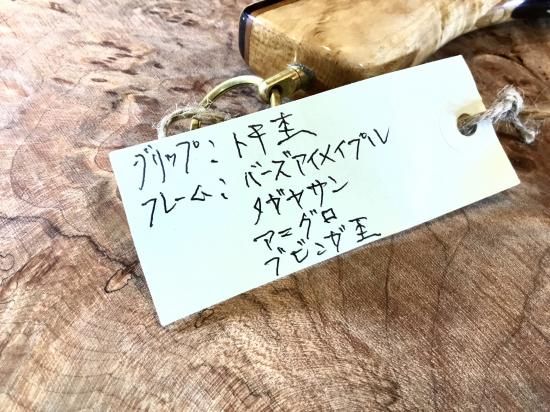 グリップ：トチ杢
フレーム：バーズアイメイプル
タガヤサン
アニグロ
ブビンガ杢